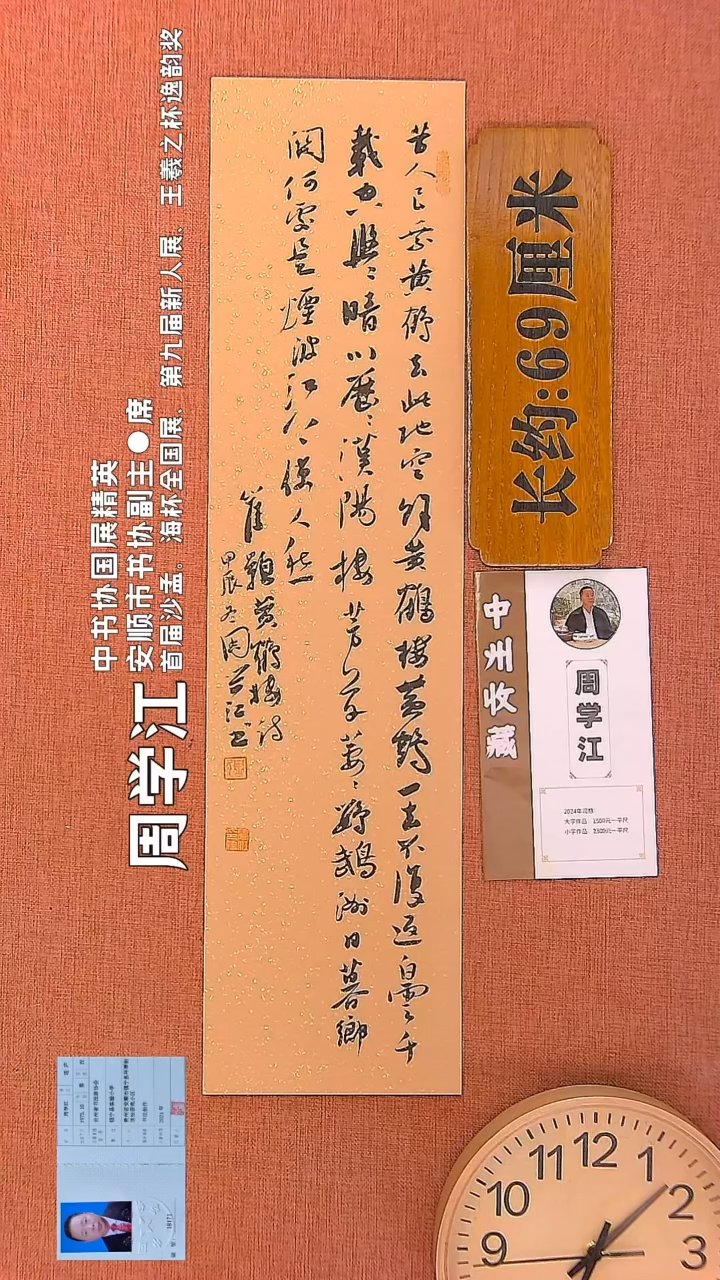 中书协国展精英
安顺市书协副主●席
首届沙孟。海杯全国展、第九届新人展、王羲之杯逸韵奖
周学江
昔人已乘黄鹤去此地空余黄鹤楼黄鹤一去不复返白雲千
載空悠〻晴川歷〻漢陽樓芳草萋〻鸚鵡洲日暮鄉
関何處是煙波江上使人愁
崔顥黄鹤楼诗
甲辰冬周学江书
长约:69厘米
中州收藏
周学江
2024年润格
大字作品 1500元一平尺
小字作品 2300元一平尺
11 12 1
10 2
9 3